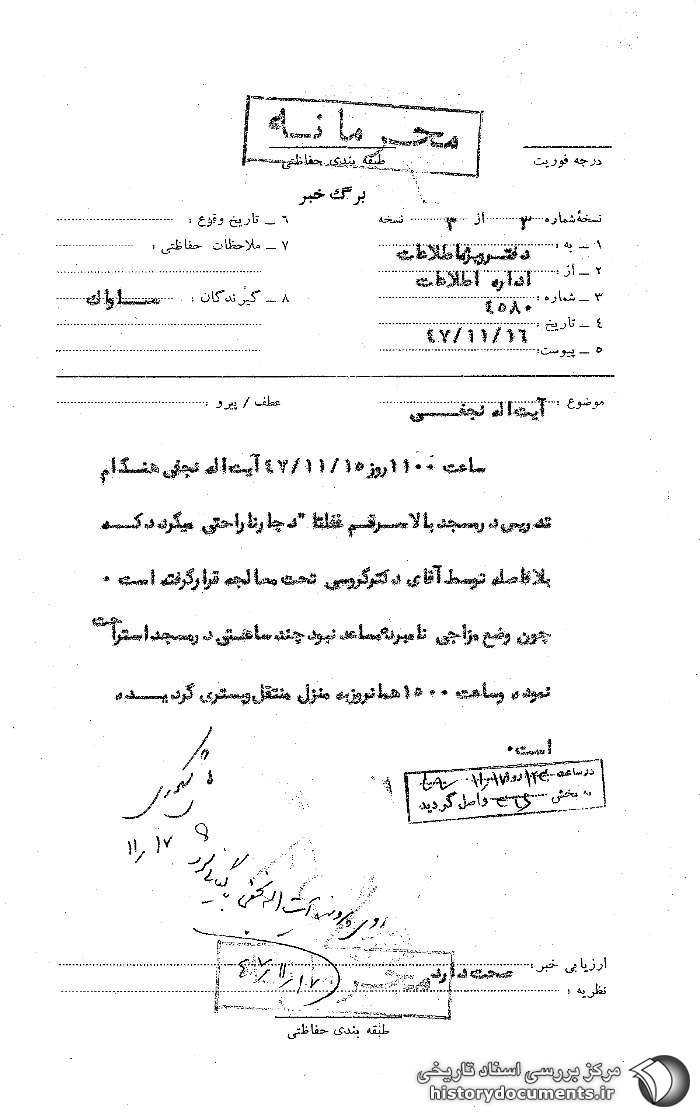 محرمانه
طبقه بندی حفاظتی
درجه فوریت
برگ خبر
نسخهٔ شماره ۳ از ۳ نسخه
۱ ـ به : دفتر ویژه اطلاعات
۲ ـ از : اداره اطلاعات
۳ ـ شماره : ٤٥٨٠
۴ ـ تاریخ : ٤٧/۱۱/۱٦
۵ ـ پیوست :
۶ ـ تاریخ وقوع :
۷ ـ ملاحظات حفاظتی :
۸ ـ گیرندگان : ساواک
موضوع : آیت اله نجفی
عطف / پیرو :
ساعت ۱۱۰۰ روز ٤٧/۱۱/۱٥ آیت اله نجفی هنگام
تدریس در مسجد بالا سر قم غفلتا" دچار ناراحتی میگردد که
بلافاصله توسط آقای دکتر گروسی تحت معالجه قرار گرفته است ۰
چون وضع مزاجی نامبرده مساعد نبود چند ساعتی در مسجد استراحت
نموده و ساعت ۱٥۰۰ همانروز به منزل منتقل و بستری گردیده
است ۰
در ساعت روز ۱۱/۱۷
به بخش واصل گردید
۱۱/۱۷
روی پرونده آیت اله نجفی بایگانی گردد
٤٧/۱۱/۱۷
ارزیابی خبر : صحت دارد
نظریه :
محر
طبقه بندی حفاظتی
مرکز بررسی اسناد تاریخی
historydocuments.ir